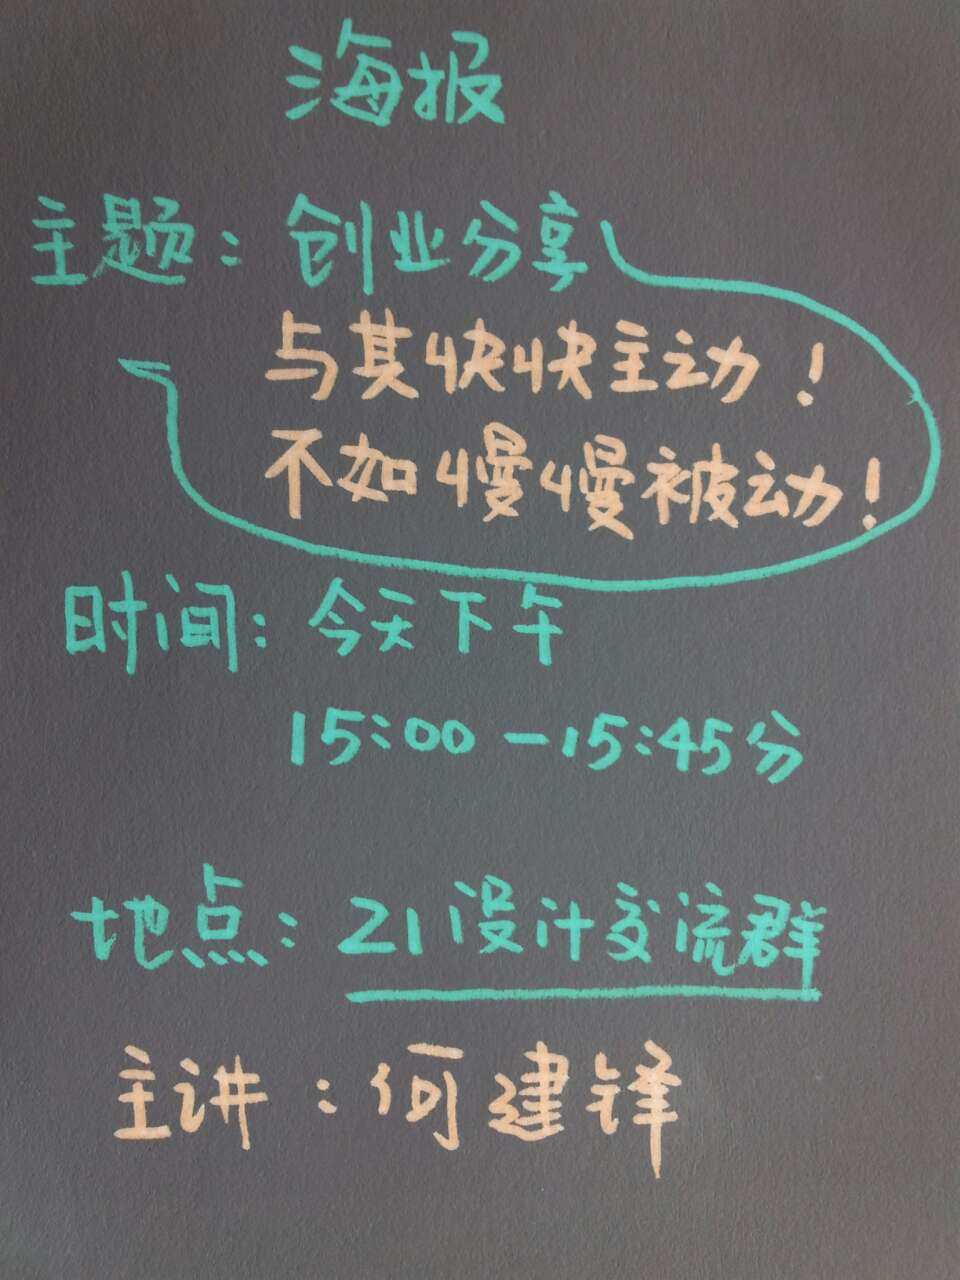 海报
主题：创业分享
与其快快主动！
不如慢慢被动！
时间：今天下午
15:00－15:45分
地点：21设计交流群
主讲：何建锋